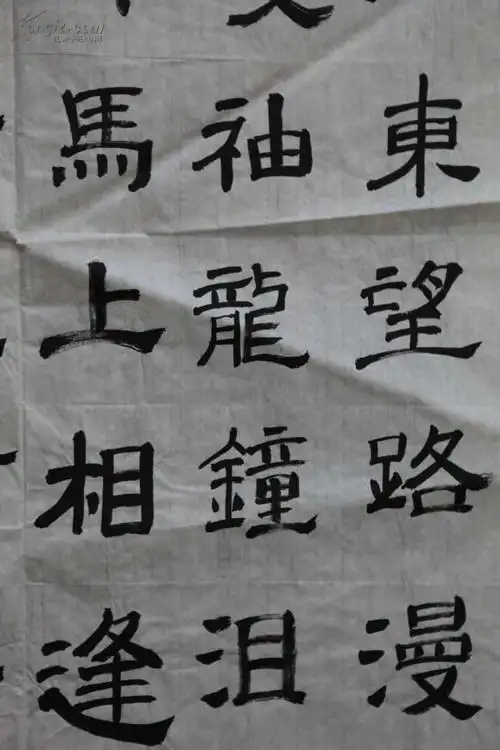 東望路漫
袖龍鐘泪
馬上相逢